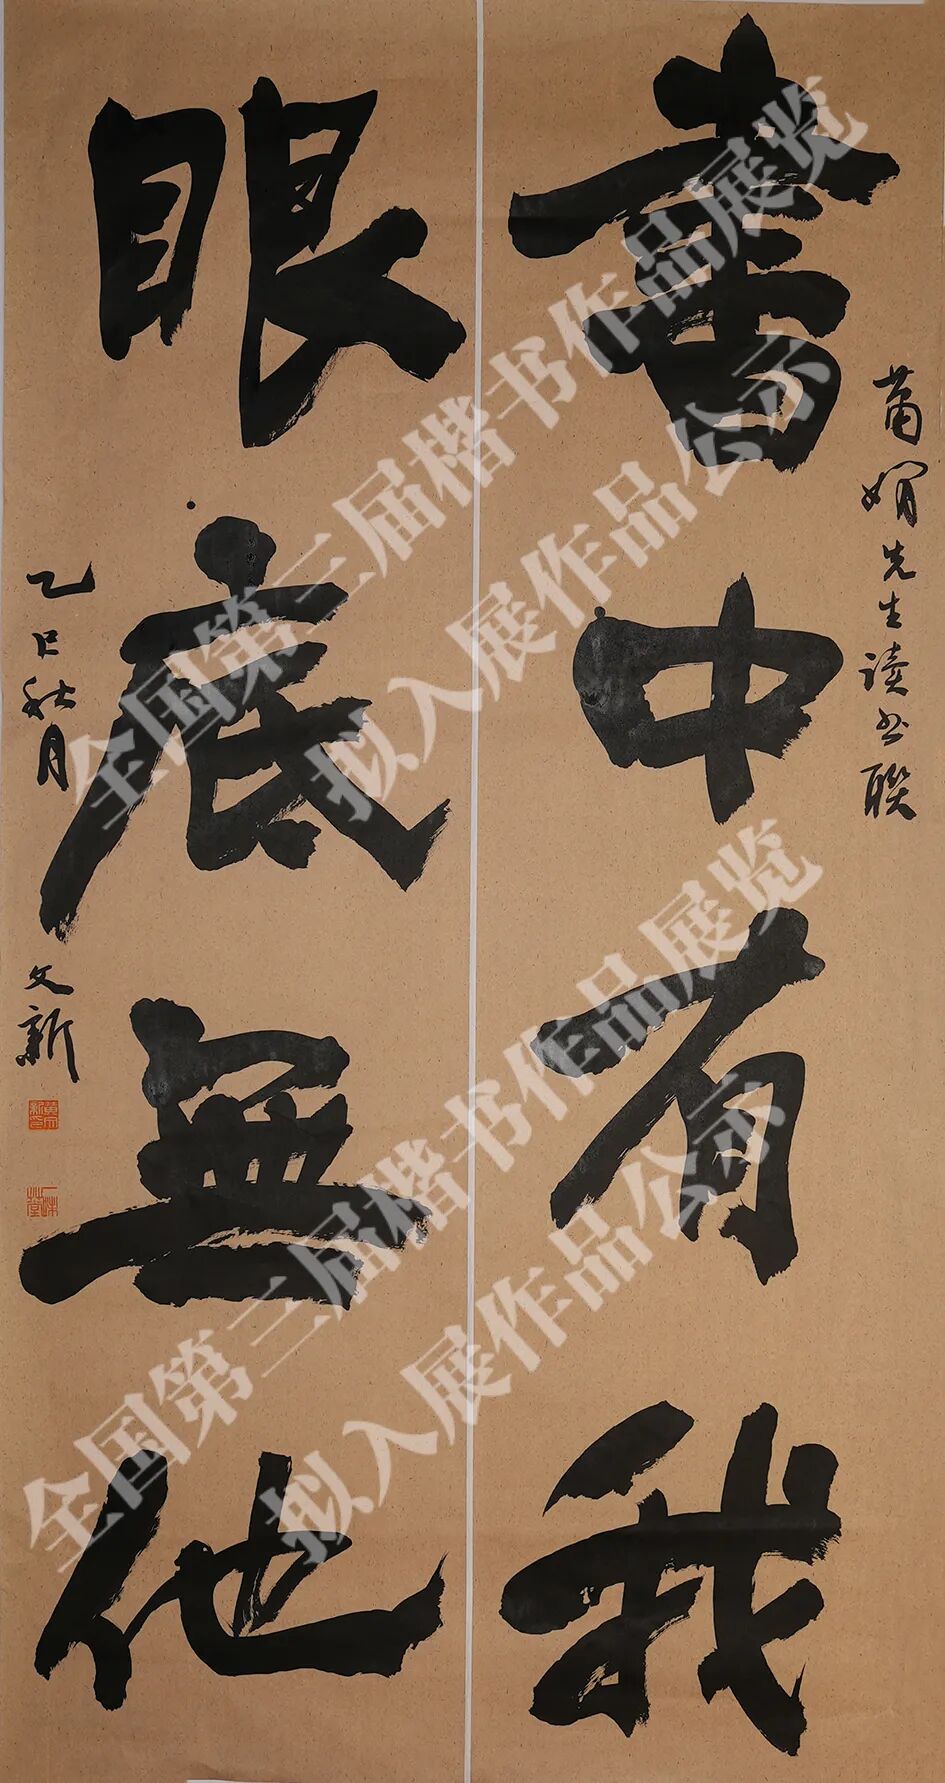 書中有我
萧嫺先生读书联
眼底無他
乙巳秋月 文新
全国第三届楷书作品展览
拟入展作品公示
全国第三届楷书作品展览
拟入展作品公示